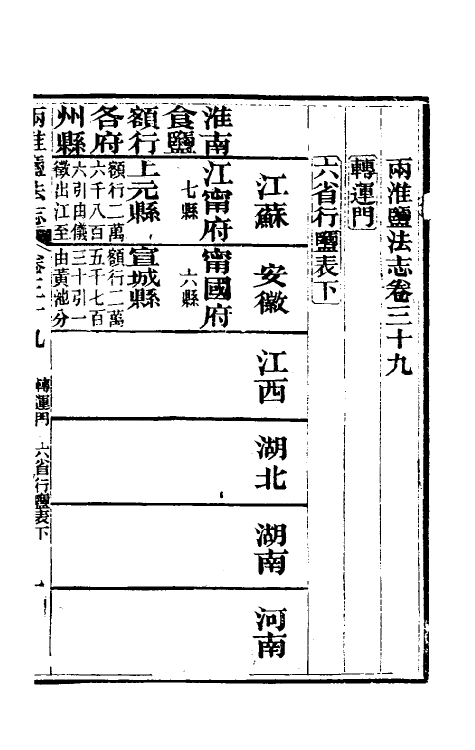 兩淮鹽法志卷三十九
轉運門
六省行鹽表下
江蘇
安徽
江西
湖北
湖南
河南
淮南食鹽額行各府州縣
江甯府
七縣
上元縣
額行二萬
六千八百
六引由儀
徵出江至
甯國府
六縣
宣城縣
額行二萬
五千七百
三十引一
由黃池分
兩淮鹽法志
卷三十九
轉運門
六省行鹽表下
一